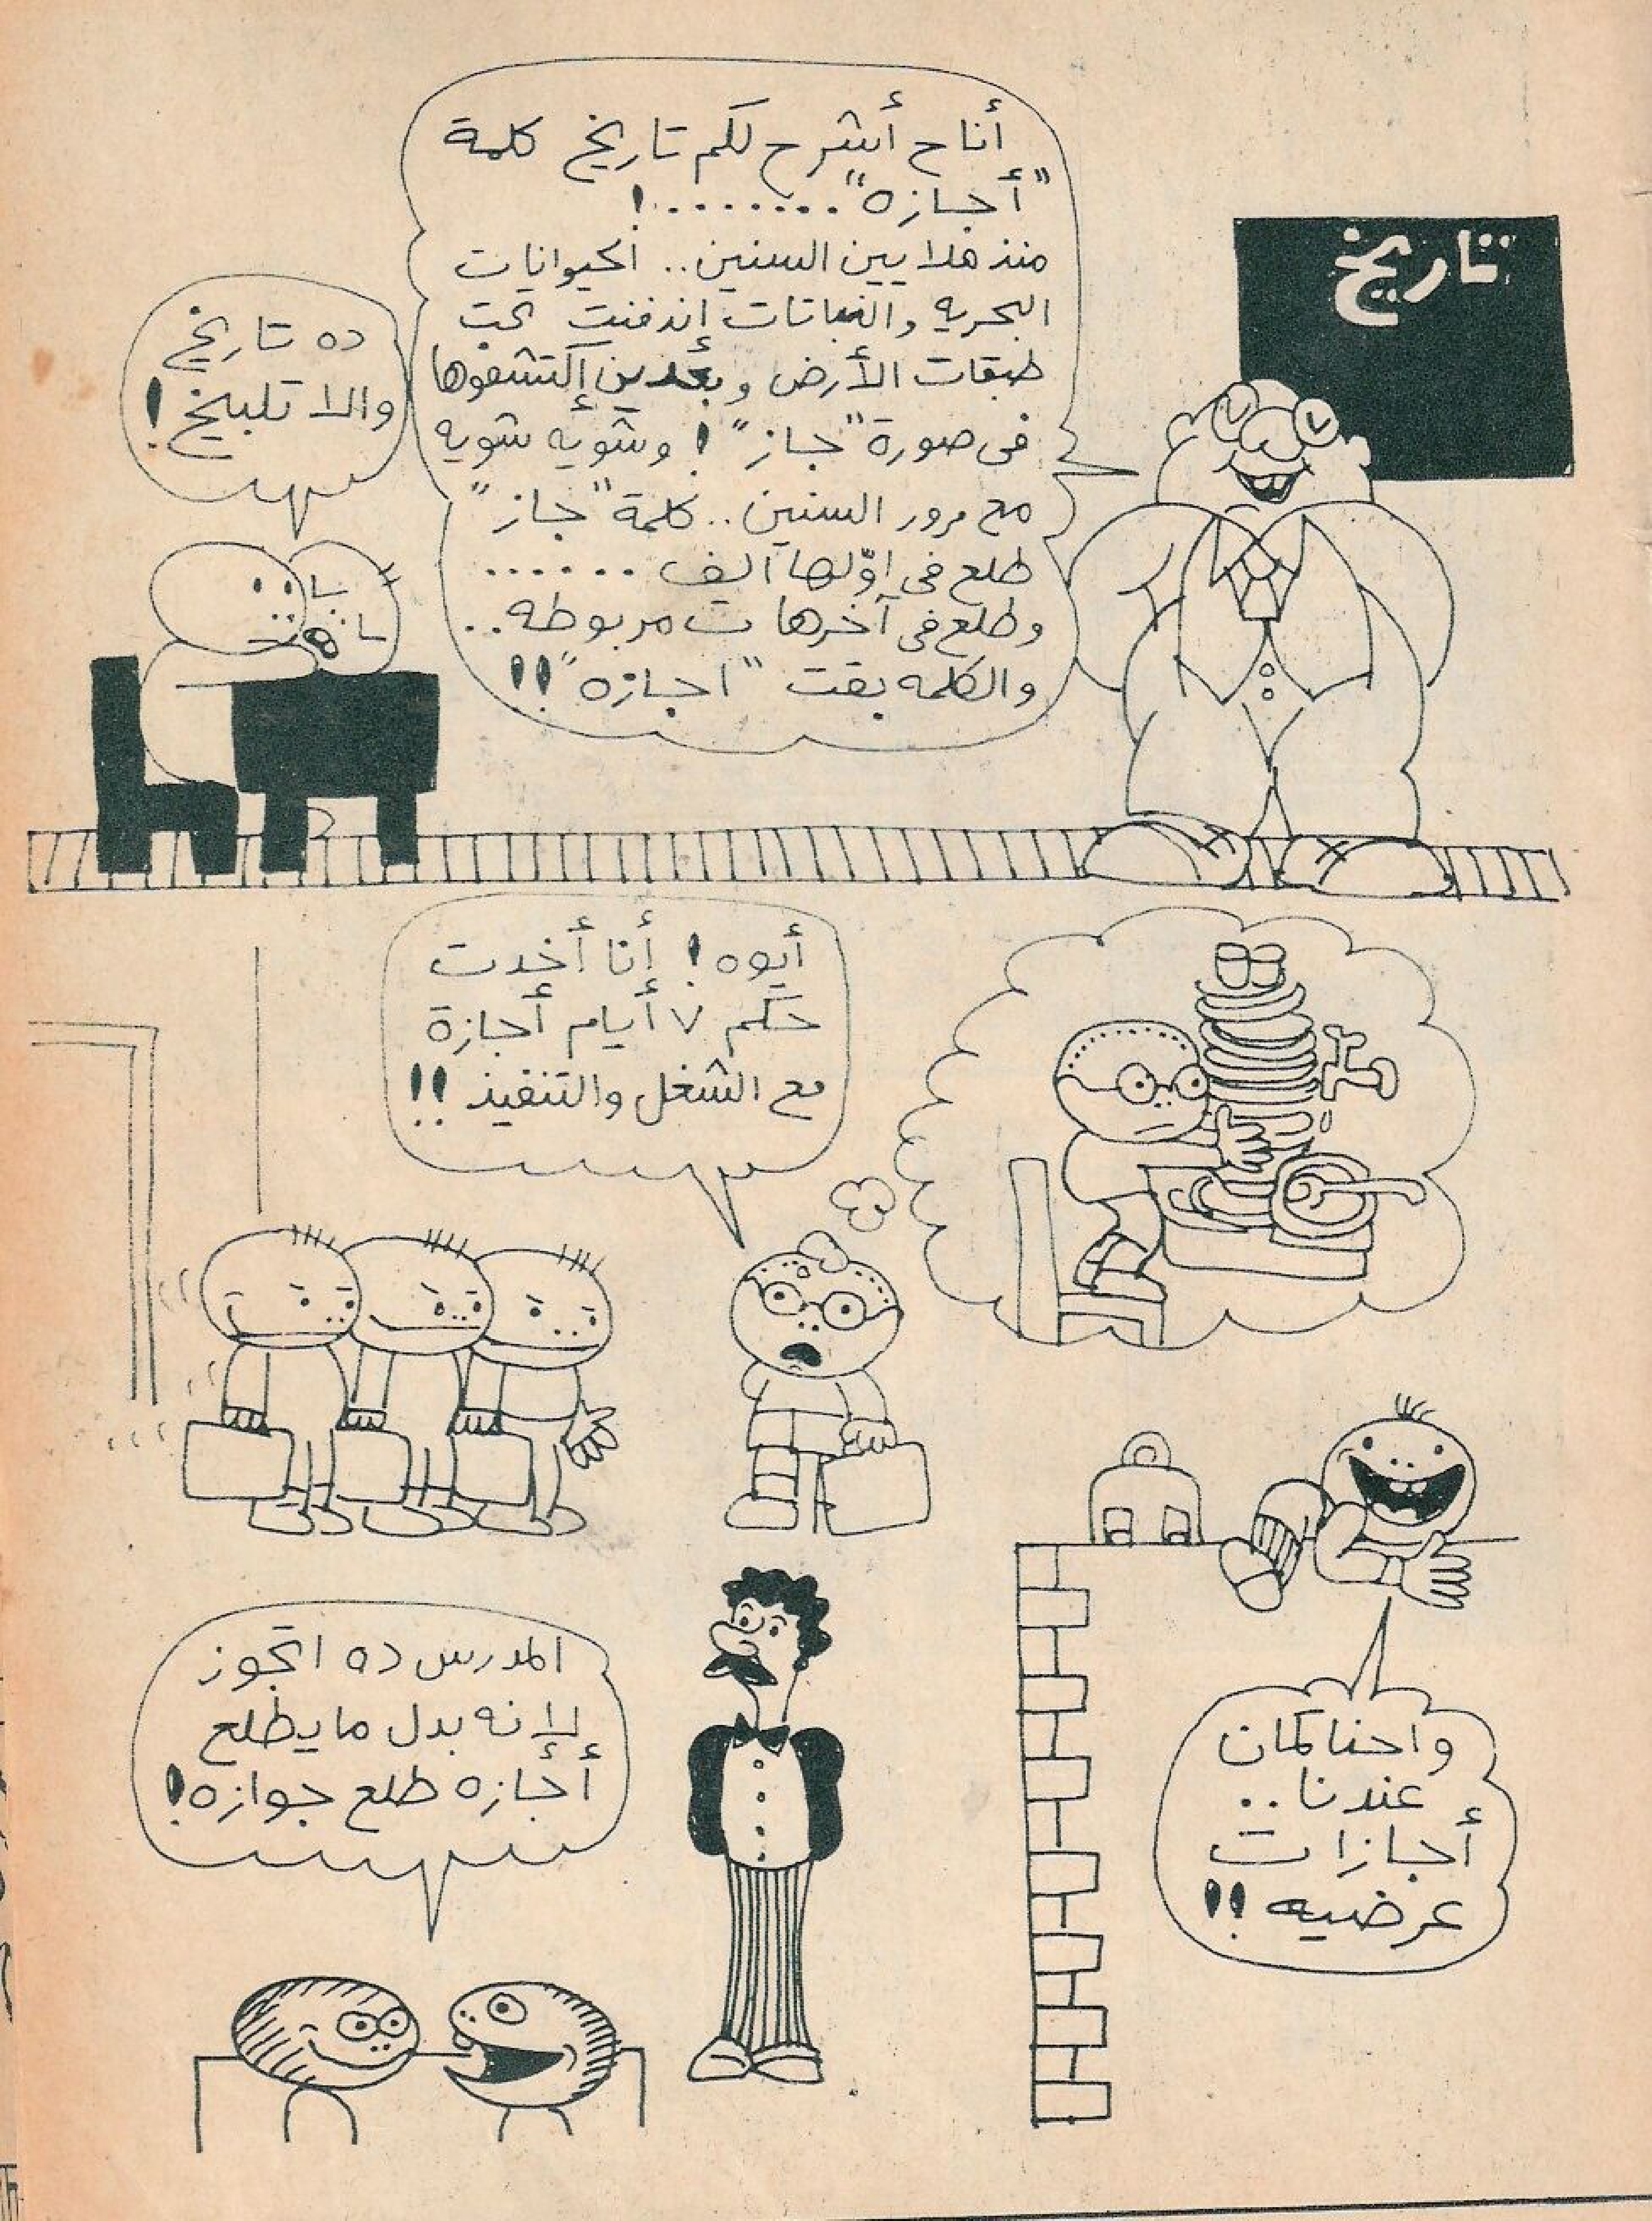 تاريخ
أنا ح أشرح لكم تاريخ كلمة
"أجازه"........!
منذ ملايين السنين.. الحيوانات
البحريه والنباتات إندفنت تحت
طبقات الأرض وبعدين إكتشفوها
فى صورة "جاز"! وشويه شويه
مع مرور السنين.. كلمة "جاز"
طلع فى اوّلها الف......
وطلع فى آخرها ت مربوطه..
والكلمه بقت "اجازه"!!
ده تاريخ
والا تلبيخ!
أيوه! أنا أخدت
حكم ٧ أيام أجازة
مع الشغل والتنفيذ!!
واحنا كمان
عندنا..
أجازات
عرضيه!!
المدرس ده اتجوز
لإنه بدل ما يطلع
أجازه طلع جوازه!